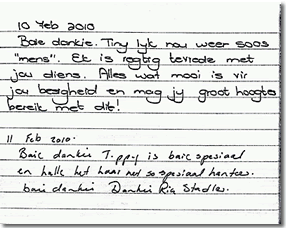 10 Feb 2010
Baie dankie. Tiny lyk nou weer soos
"mens". Ek is regtig tevrede met
jou diens. Alles wat mooi is vir
jou besigheid en mag jy groot hoogtes
bereik met dit!
11 Feb 2010.
Baie dankie Tippy is baie spesiaal
en hulle het haar net so spesiaal hanteer.
baie dankie Dankie Ria Stadler.